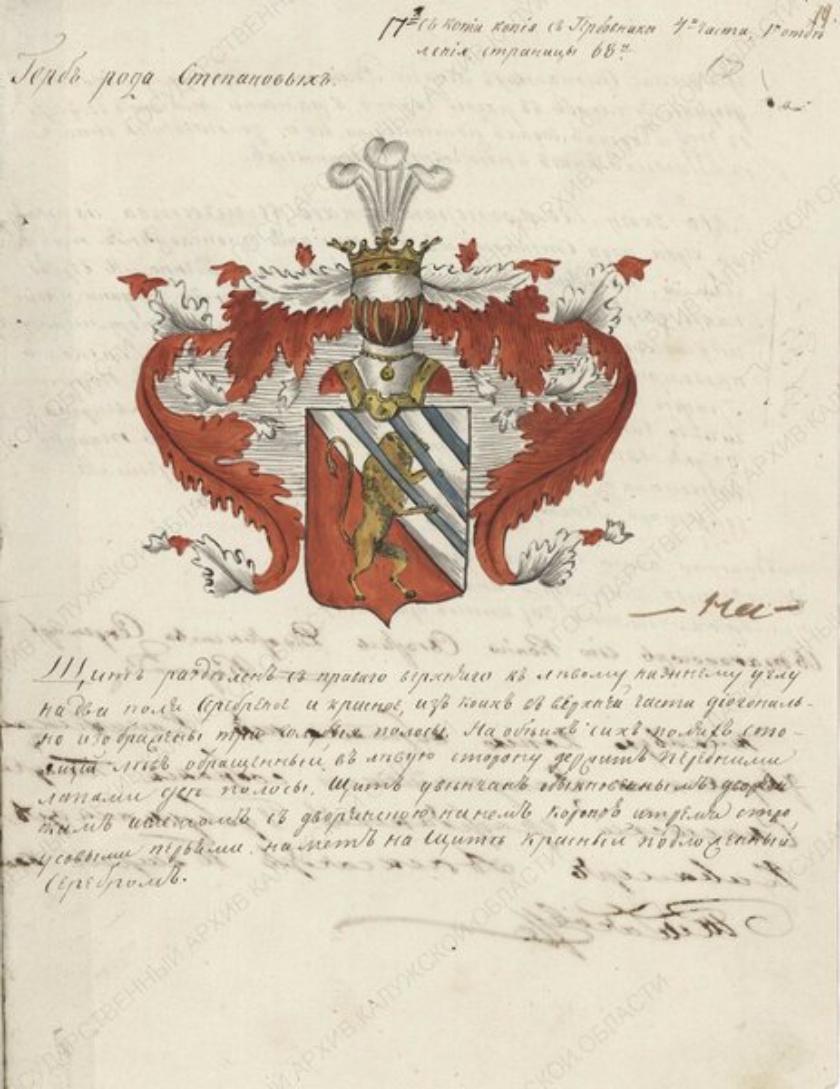 19.
съ копіи копія съ Гербовника 4ой части, 1го отдѣ
ленія страницы 68я.
Гербъ рода Степановыхъ.
Щитъ раздѣленъ съ праваго верхняго къ лѣвому нижнему углу
на два поля серебреное и красное, изъ коихъ въ верхней части діогональ-
но изображены три голубыя полосы. На обѣихъ сихъ поляхъ сто-
ящій левъ обращенный въ лѣвую сторону держитъ передними
лапами двѣ полосы. Щитъ увѣнчанъ обыкновеннымъ дворян
скимъ шлемомъ съ дворянскою на немъ короною и тремя стро
усовыми перьями. наметъ на щитѣ красный подложенный
серебромъ.
ГОСУДАРСТВЕННЫЙ АРХИВ КАЛУЖСКОЙ ОБЛАСТИ